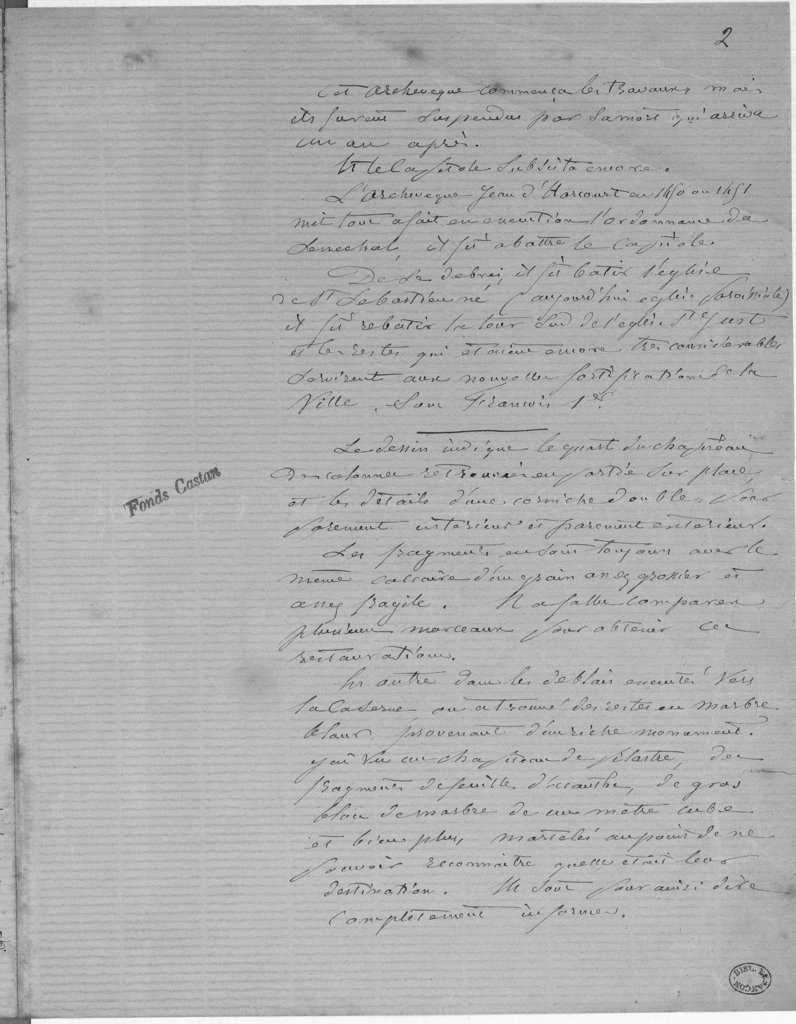 2
Cet Archeveque commença les travaux, mais
ils furent suspendus par sa mort qui arriva
un an après.
Et le Capitole subsista encore.
L'Archeveque Jean d'Harcourt en 1450 ou 1451
mit tout a fait en execution l'ordonnance du
Senechal, il fit abattre le Capitole.
De ses debris, il fit batir l'eglise
de St Sebastien (aujourd'hui eglise paroissiale)
il fit rebatir la tour Sud de l'eglise St Just
et les restes qui étaient encore tres considerables
servirent aux nouvelles fortifications de la
Ville, sous Francois 1er.
Le dessin indique le quart du chapiteau
Des colonnes retrouvées en partie sur place,
et les détails d'une corniche double, pour
parement interieur et parement exterieur.
Les fragments en sont toujours avec le
même calcaire d'un grain assez grossier et
assez fragile. Il a fallu comparer
plusieurs morceaux pour obtenir ces
restaurations.
En outre dans les deblais executés vers
la Caserne on a trouvé des restes en marbre
blanc provenant d'un riche monument.
J'ai vu un chapiteau de pilastre, des
fragments de feuilles d'accanthe, de gros
blocs de marbre de un mètre cube
et bien plus, martelés au point de ne
pouvoir reconnaitre quelle était leur
destination. Ils sont pour ainsi dire
completement informes.
Fonds Castan
BIBL. DE BESANÇON